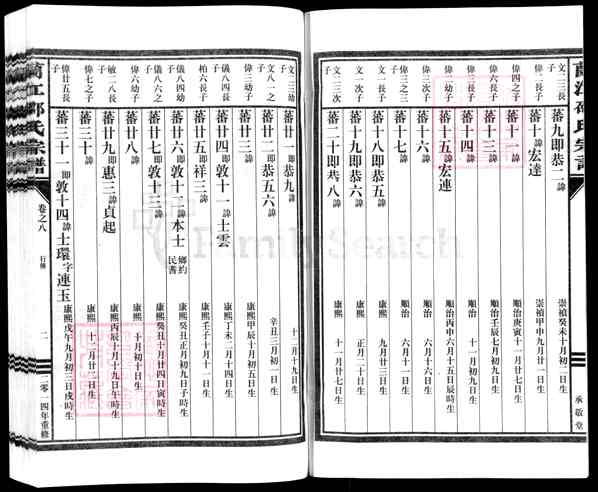 蘭江邵氏宗譜
承敬堂
文二三長子 蕃九即恭二諱 崇禎癸未十月初二日生
偉二長子 蕃十諱宏達 崇禎甲申九月廿二日生
偉四之子 蕃十一諱 順治庚寅十一月廿七日生
偉三長子 蕃十三諱 順治壬辰七月初九日生
蕃十四諱 順治 六月初九日生
蕃十五諱宏連 順治丙申六月十五辰時生
蕃十六諱 順治 六月十六日生
蕃十二諱 順治 六月十一日生
蕃十八即恭五 康熙 九月廿三日生
蕃十七諱 康熙 正月二十日生
文三三次子 蕃二十即恭八諱 康熙 十一月廿七日生
文二三幼子 蕃廿一即恭九諱 十二月十九日生
文八一之子 蕃廿二即恭五六諱 辛丑三月初一日生
偉三幼子 蕃廿三諱 康熙甲辰十月初五日生
儀八四長子 蕃廿四即敦十一諱士雲 康熙丁未二月十四日生
柏六長子 蕃廿五即祥三諱 康熙壬子十月十一日生
儀八四幼子 蕃廿六即敦十二諱本士 鄉約民耆 康熙癸丑正月初九日子時生
儀八六之子 蕃廿七即敦十三諱 康熙癸丑十月廿四日寅時生
偉六幼子 蕃廿八諱 康熙 十月初十日生
敏二八長子 蕃廿九即惠三諱貞起 康熙丙辰十月十九日午時生
偉七之子 蕃三十諱 康熙 十二月廿一日生
偉廿五長子 蕃三十一即敦十四諱士環字連玉 康熙戊午九月初三日戌時生
蘭江邵氏宗譜
卷之八
行傳
二
二零一四年重修
FamilySearch